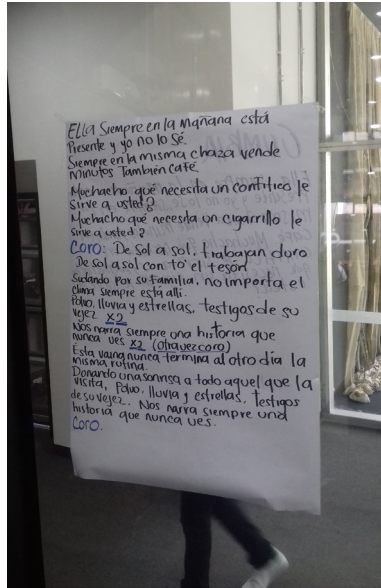 Ella Siempre en la Mañana está
Presente y yo no lo sé.
Siempre en la misma chaza vende
minutos También café.
Muchacho qué necesita un contifico le
sirve a usted?
Muchacho qué necesita un cigarrillo le
sirve a usted?
Coro: De sol a sol, trabajan duro
De sol a sol con to' el tesón
Sudando por su familia, no importa el
clima siempre está alli.
Polvo, lluvia y estrellas, testigos de su
vejez x2
Nos narra siempre una historia que
nunca ves x2 (otra vez coro)
Esta vaina nunca termina al otro día la
misma rutina.
Donando una sonrisa a todo aquel que la
visita, Polvo, lluvia y estrellas, testigos
de su vejez. Nos narra siempre una
historia que nunca ves.
Coro.